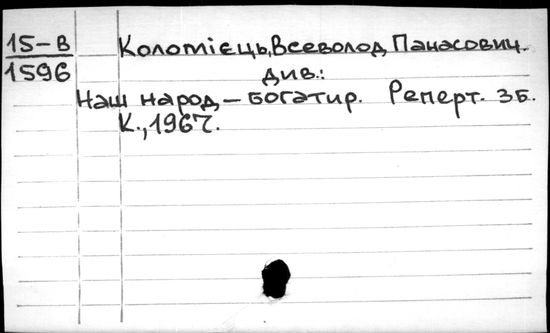 15-В
1596
Коломієць, Всеволод Панасович.
див.:
Наш народ – богатир. Реперт. зб.
К., 1967.